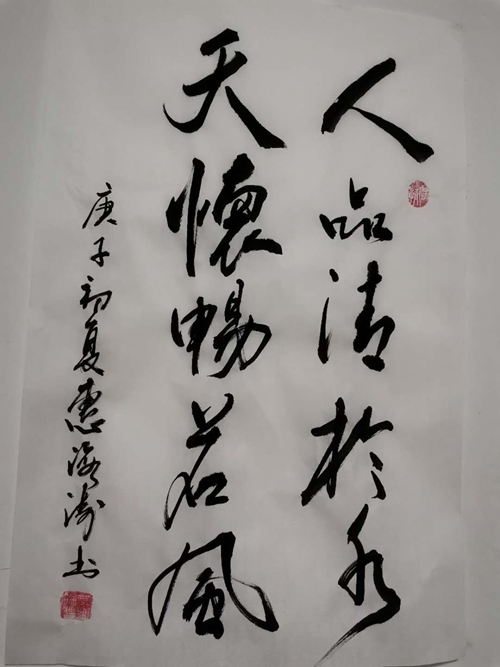 人品清於水
天懷暢若風
庚子初夏惠海涛书